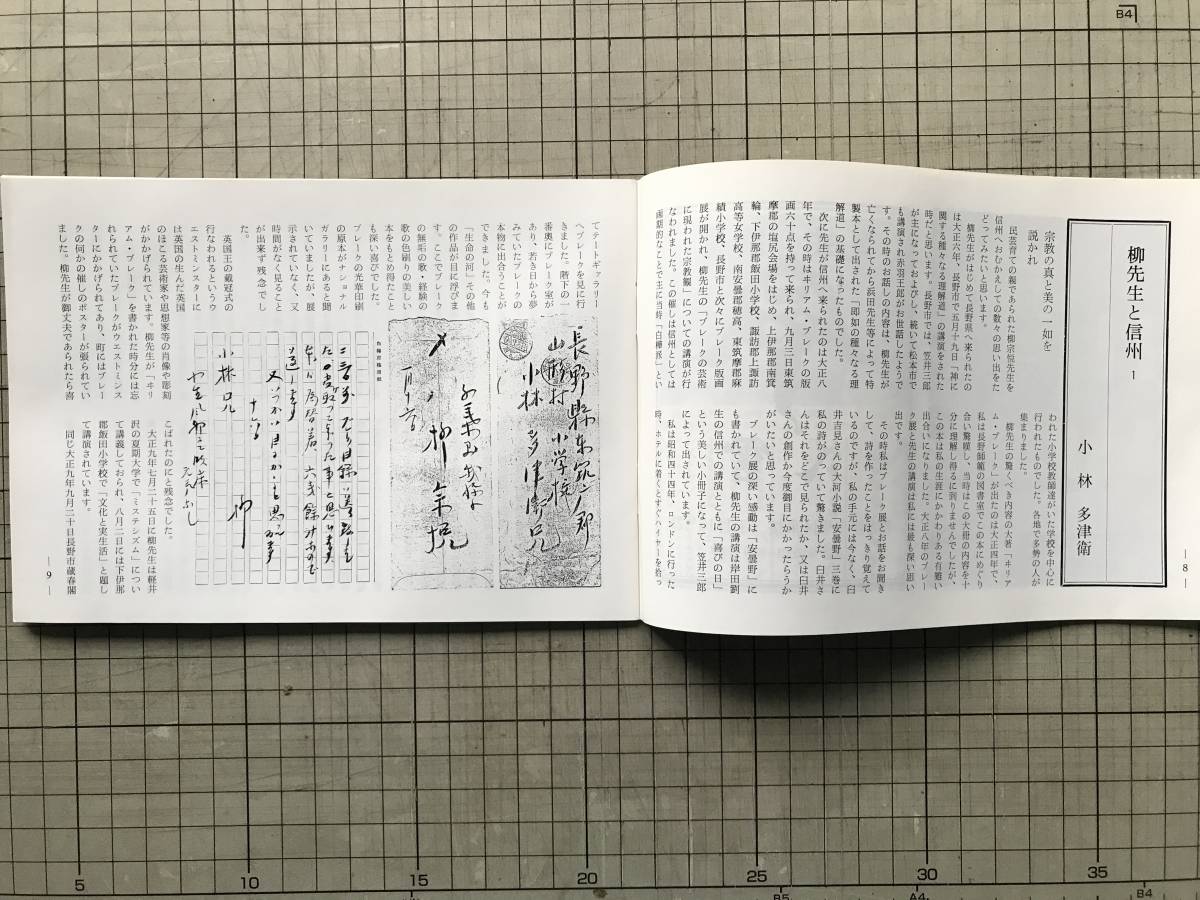 柳先生と信州 1
小林多津衛
宗教の真と美の一如を
説かれ
民芸育ての親であられた柳宗悦先生を
信州へおむかえしての数々の思い出をた
どってみたいと思います。
柳先生がはじめて長野県へ来られたの
は大正六年、長野市で五月十九日「神に
関する種々なる理解道」の講演をされた
時だと思います。長野市では、笠井三郎
が主になっておよびし、続いて松本市で
も講演され赤羽王郎がお世話したようで
す。その時のお話しの内容は、柳先生が
亡くなられてから浜田先生等によって特
製本として出された「即如の種々なる理
解道」の基礎になったものでした。
次に先生が信州へ来られたのは大正八
年で、その時はヰリアム・ブレークの版
画六十点を持って来られ、九月三日東筑
摩郡の塩尻会場をはじめ、上伊那郡南箕
輪、下伊那郡飯田小学校、諏訪郡上諏訪
高等女学校、南安曇郡穂高、東筑摩郡麻
績小学校、長野市と次々にブレーク版画
展が開かれ、柳先生の「ブレークの芸術
に現われた宗教観」についての講演が行
なわれました。この催しは信州としては
画期的なことで主に当時「白樺派」とい
われた小学校教師達がいた学校を中心に
行われたものでした。各地で多勢の人が
集まりました。
柳先生の驚くべき内容の大著「ヰリア
ム・ブレーク」が出たのは大正四年で、
私は長野師範の図書室でこの本にめぐり
合い驚嘆し、当時はこの大冊の内容を十
分に理解し得るに到りませんでしたが、
この本は私の生涯にかかわりある有難い
出合いになりました。大正八年のブレー
ク展と先生の講演は私には最も深い思い
出です。
その時私はブレーク展とお話をお聞き
して、詩を作ったことをはっきり覚えて
いるのですが、私の手元には今なく、臼
井吉見さんの大河小説「安曇野」三巻に
私の詩がのっていて驚きました。臼井さ
んはそれをどこで見られたか、又は臼井
さんの創作か今度御目にかかったらうか
がいたいと思っています。
ブレーク展の深い感動は「安曇野」に
も書かれていて、柳先生の講演は岸田劉
生の信州での講演とともに「喜びの日」
という美しい小冊子になって、笠井三郎
によって出されています。
私は昭和四十四年、ロンドンに行った
時、ホテルに着くとすぐハイヤーを拾っ
—8—
てテートギャラリー
へブレークを見に行
きました。階下の一
番奥にブレーク室が
あり、若き日から夢
みていたブレークの
本物に出合うことが
できました。今も
「生命の河」その他
の作品が目に浮びま
す。ここでブレーク
の無垢の歌・経験の
歌の色刷りの美しい
本をもとめ得たこと
も深い喜びでした。
ブレークの光華印刷
の原本がナショナル
ガラリーにあると聞
いていましたが、展
示されていなく、又
時間がなく見ること
が出来ず残念でし
た。
英国王の戴冠式の
行なわれるというウ
エストミンスターに
は英国の生んだ英国
のほこる芸術家や思想家等の肖像や彫刻
がかかげられています。柳先生が「ヰリ
アム・ブレーク」を書かれた時分には忘
れられていたブレークがウエストミンス
ターにかかげられてあり、町にはブレー
クの何かの催しのポスターが張られてい
ました。柳先生が御丈夫であられたら喜
長野縣東筑摩郡
小学校
小林多津衛兄
柳宗悦
小林兄
柳
こばれたのにと残念でした。
大正九年七月二十五日に柳先生は軽井
沢の夏期大学で「ミスチシズム」につい
て講義しておられ、八月二日には下伊那
郡飯田小学校で「文化と実生活」と題し
て講演されています。
同じ大正九年九月二十日長野市蔵春閣
—9—
B4
5
10
15
20
25
30
35
B5
A4
B4